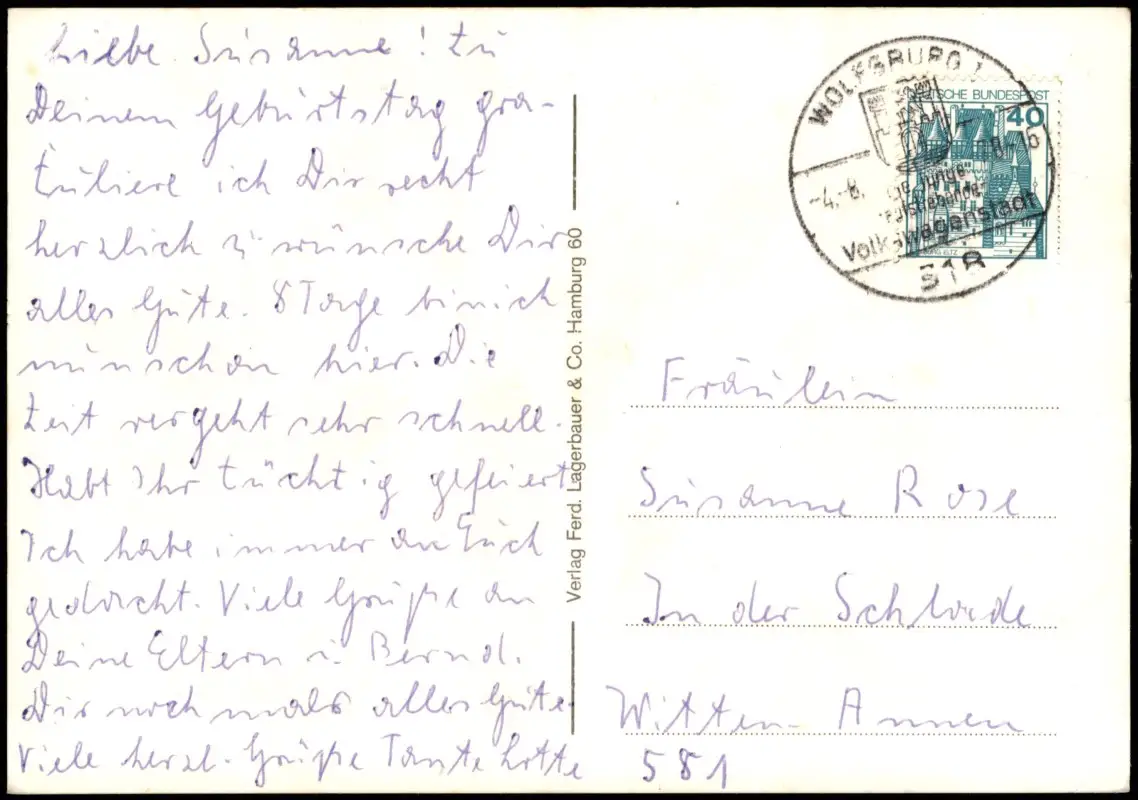 Liebe Susanne! Zu
Deinem Geburtstag gra-
tuliere ich Dir recht
herzlich u. wünsche Dir
alles Gute. 8 Tage bin ich
nun schon hier. Die
Zeit vergeht sehr schnell.
Habt Ihr tüchtig gefeiert
Ich habe immer an Euch
gedacht. Viele Grüße an
Deine Eltern u. Bernd.
Dir noch mals alles Gute.
Viele herzl. Grüße Tante Lotte
Verlag Ferd. Lagerbauer & Co. Hamburg 60
WOLFSBURG 1
DEUTSCHE BUNDESPOST
40
-4.-8.
junge
aufstrebende
Volkswagenstadt
BURG ELTZ
318
Fräulein
Susanne Rose
In der Schlade
Witten-Annen
581